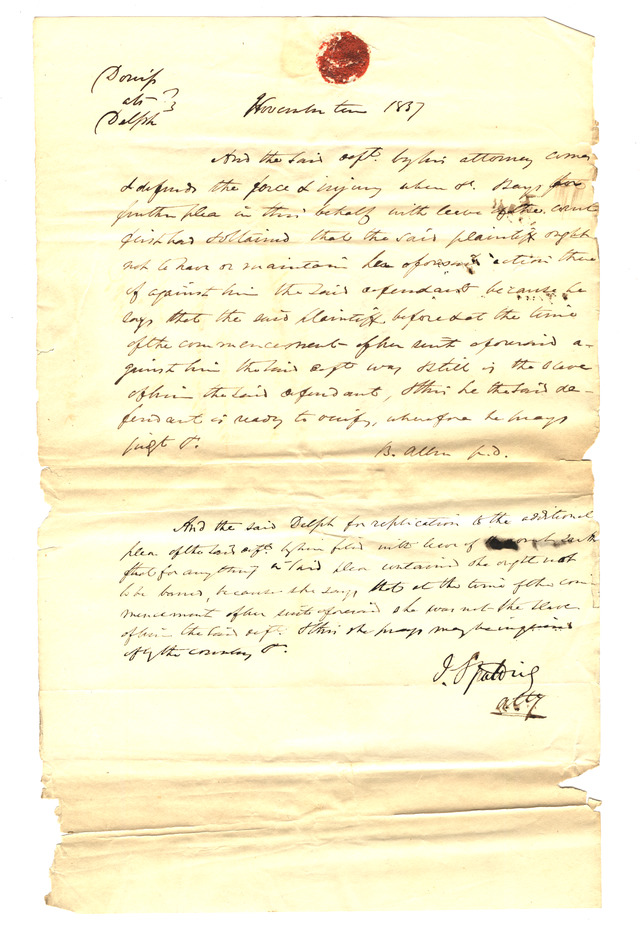 Dorris
ats
Delph
November term 1837
And the said deft. by his attorney comes
& defends the force & injury when &c. & says for
further plea in this behalf with leave of the court
first had & obtained that the said plaintiff ought
not to have or maintain her aforesaid action there
of against him the said defendant because he
says that the said plaintiff before & at the time
of the commencement of her suit aforesaid a-
gainst him the said deft was & still is the slave
of him the said defendant, & this he the said de-
fendant is ready to verify, wherefore he prays
judgt &c.
B. Allen p.d.
And the said Delph for replication to the additional
plea of the said deft. by him filed with leave of court saith
that for anything in said plea contained she ought not
to be barred, because she says, that at the time of the com-
mencement of her suit aforesaid she was not the slave
of him the said deft. & this she prays may be inquired
of by the country &c.
J. Spalding
atty